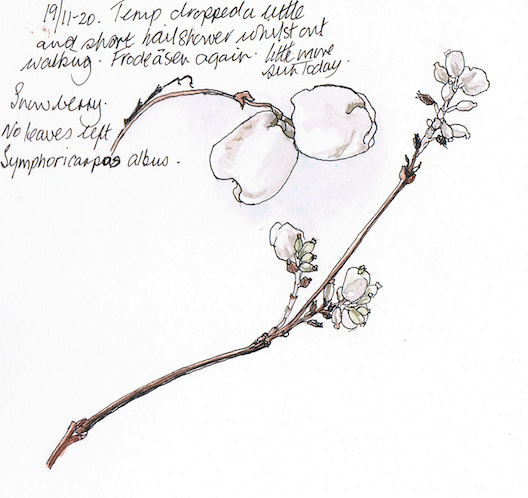 19/11-20. Temp dropped a little
and short hailshower whilst out
walking. Frodeåsen again. little more
sun Today.
Snowberry.
No leaves left
Symphoricarpos albus.